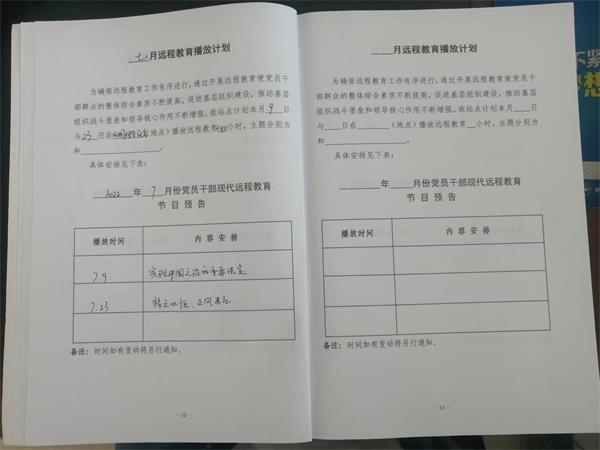 七月远程教育播放计划
为确保远程教育工作有序进行，通过开展远程教育使党员干
部群众的整体综合素质不断提高，促进基层组织建设，推动基层
组织战斗堡垒和领导核心作用不断增强。我站点计划本月9日
与23日在（地点）播放远程教育小时，主题分别为
和
具体安排见下表：
2022年7月份党员干部现代远程教育
节目预告
播放时间 内容安排
7.9 实现中国之治的
7.23 持之以恒，正风肃纪.
备注：时间如有变动将另行通知。
- 12 -
____月远程教育播放计划
为确保远程教育工作有序进行，通过开展远程教育使党员干
部群众的整体综合素质不断提高，促进基层组织建设，推动基层
组织战斗堡垒和领导核心作用不断增强。我站点计划本月____日
与____日在________（地点）播放远程教育__小时，主题分别为
和
具体安排见下表：
______年____月份党员干部现代远程教育
节目预告
播放时间 内容安排
备注：时间如有变动将另行通知。
- 13 -
不紧
想